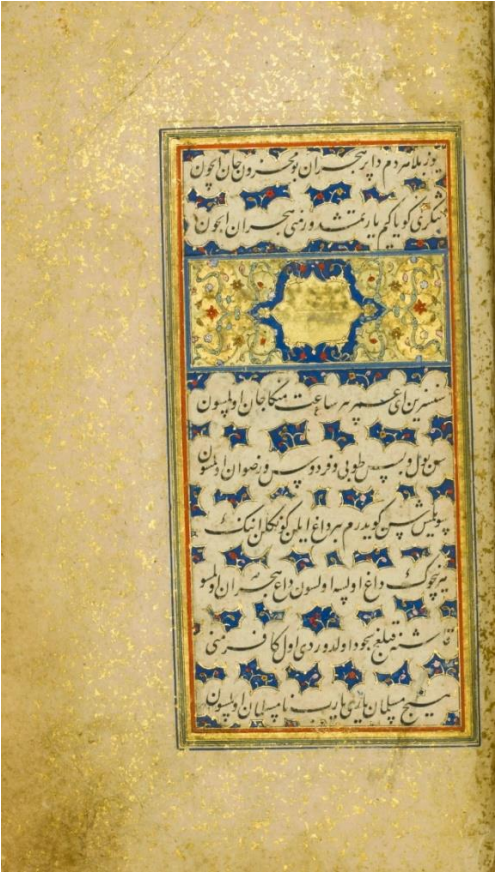 یوز بلا هر دم دا پر هجران بو محزون جان اچون
کویا کیم یارتمشدور منی هجران اچون
سنسزین ای عمر هر ساعت منکا جان اولمسون
سن بول و بس طوبی و فردوس و رضوان اولمسون
کویدرم هر داغ ایلن کونکلن انینک
هر نچوک داغ اولسه اولسون داغ هجران اولمسون
قاشنه قیلغچ سجود اولدوردی اول کافر منی
هیچ مسلمان یارب نامسلمان اولمسون